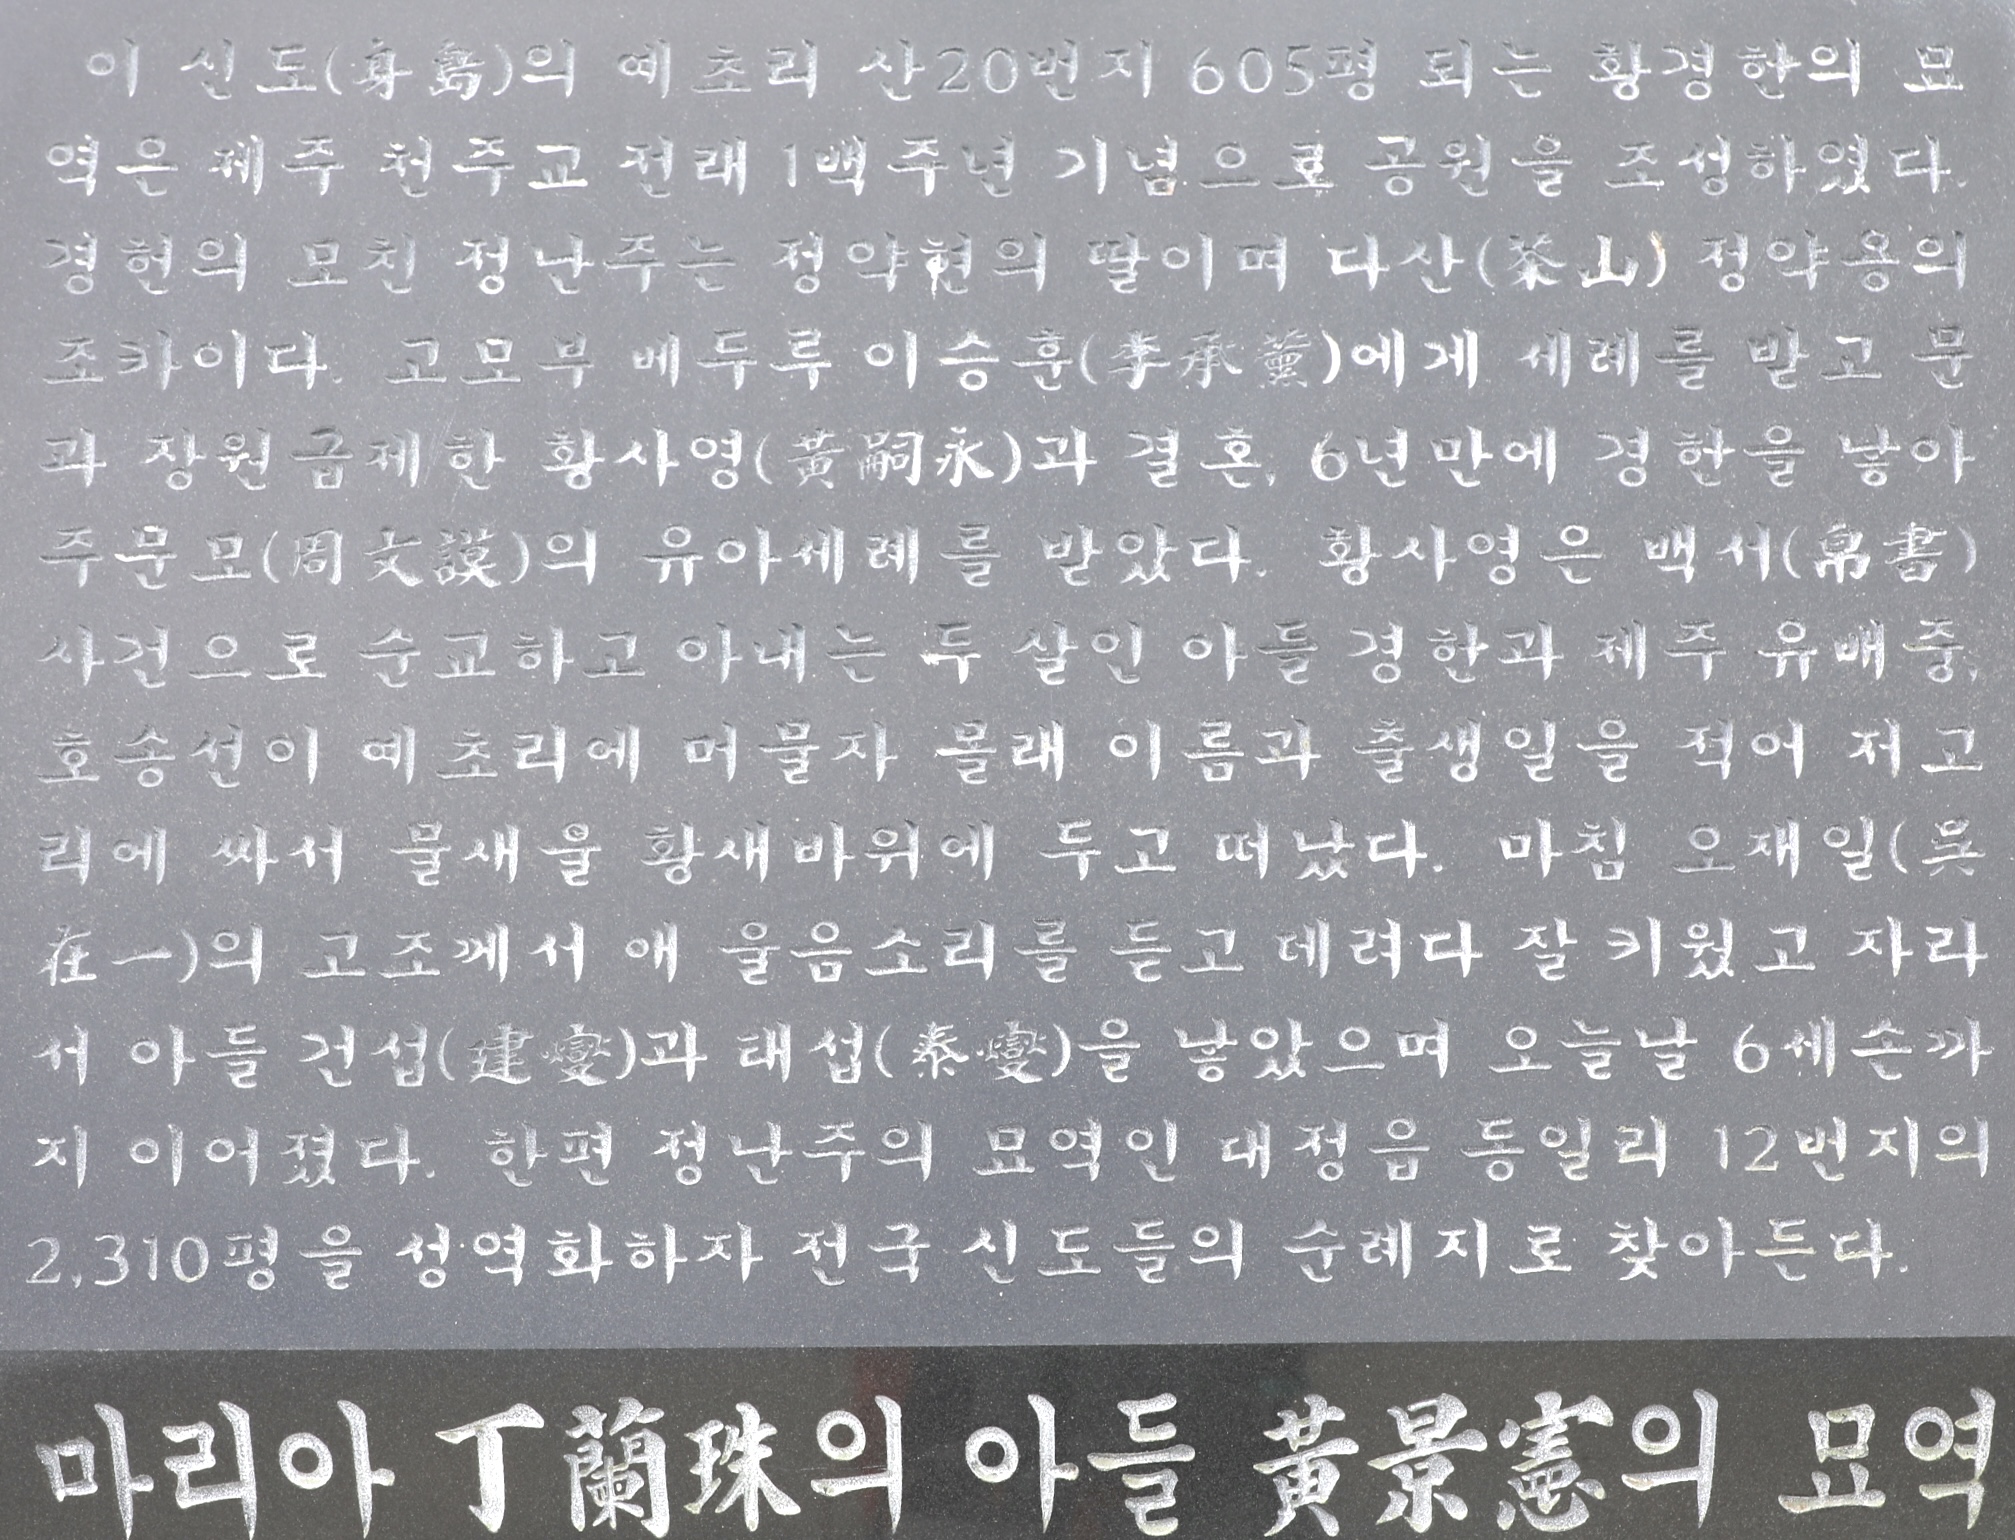 이 신도(身島)의 예초리 산20번지 605평 되는 황경한의 묘
역은 제주 천주교 전래 1백주년 기념으로 공원을 조성하였다.
경헌의 모친 정난주는 정약현의 딸이며 다산(茶山) 정약용의
조카이다. 고모부 베두루 이승훈(李承薰)에게 세례를 받고 문
과 장원급제한 황사영(黃嗣永)과 결혼, 6년만에 경한을 낳아
주문모(周文謨)의 유아세례를 받았다. 황사영은 백서(帛書)
사건으로 순교하고 아내는 두 살인 아들 경한과 제주 유배중,
호송선이 예초리에 머물자 몰래 이름과 출생일을 적어 저고
리에 싸서 물새울 황새바위에 두고 떠났다. 마침 오재일(吳
在一)의 고조께서 애 울음소리를 듣고 데려다 잘 키웠고 자라
서 아들 건섭(建燮)과 태섭(泰燮)을 낳았으며 오늘날 6세손까
지 이어졌다. 한편 정난주의 묘역인 대정읍 동일리 12번지의
2,310평을 성역화하자 전국 신도들의 순례지로 찾아든다.
마리아 丁蘭珠의 아들 黃景憲의 묘역